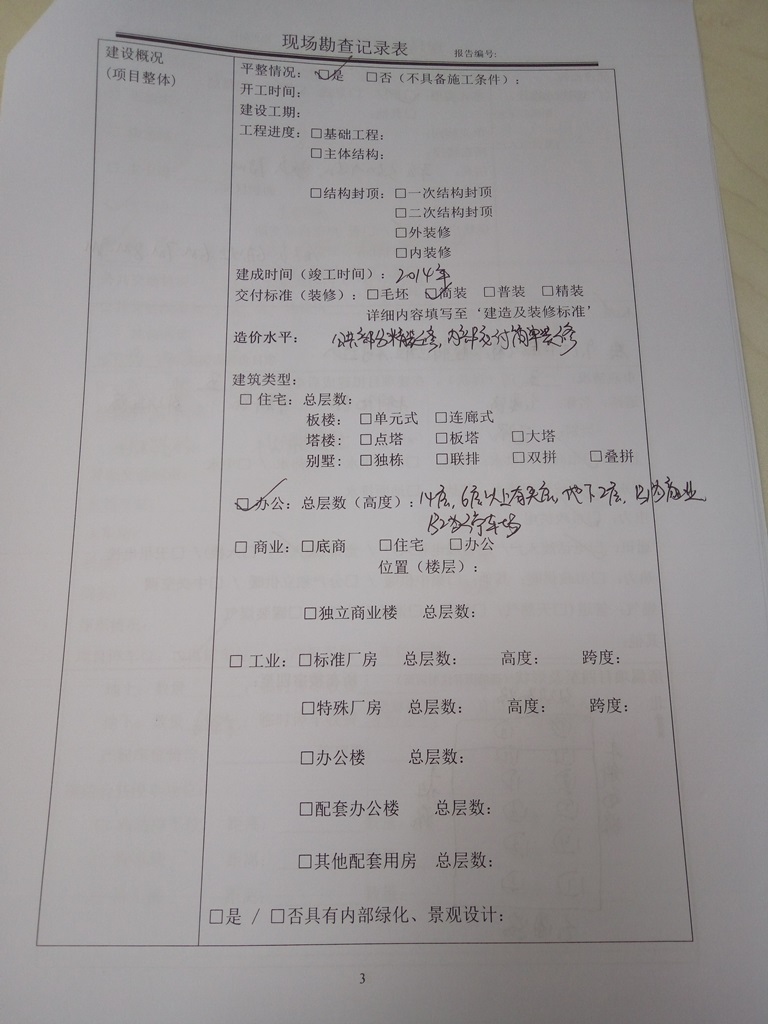 现场勘查记录表 报告编号:
建设概况
(项目整体)
平整情况：☑是 □否（不具备施工条件）：
开工时间：
建设工期：
工程进度：□基础工程：
□主体结构：
□结构封顶：□一次结构封顶
□二次结构封顶
□外装修
□内装修
建成时间（竣工时间）：2014年
交付标准（装修）：□毛坯 ☑简装 □普装 □精装
详细内容填写至‘建造及装修标准’
造价水平： 公共部分精装修，内部交付简单装修
建筑类型：
□ 住宅：总层数：
板楼： □单元式 □连廊式
塔楼： □点塔 □板塔 □大塔
别墅： □独栋 □联排 □双拼 □叠拼
☑办公：总层数（高度）：14层，6层以上有夹层，地下2层，B1为商业
B2为停车场
□ 商业：□底商 □住宅 □办公
位置（楼层）：
□独立商业楼 总层数：
□ 工业：□标准厂房 总层数： 高度： 跨度：
□特殊厂房 总层数： 高度： 跨度：
□办公楼 总层数：
□配套办公楼 总层数：
□其他配套用房 总层数：
□是 / □否具有内部绿化、景观设计：
3